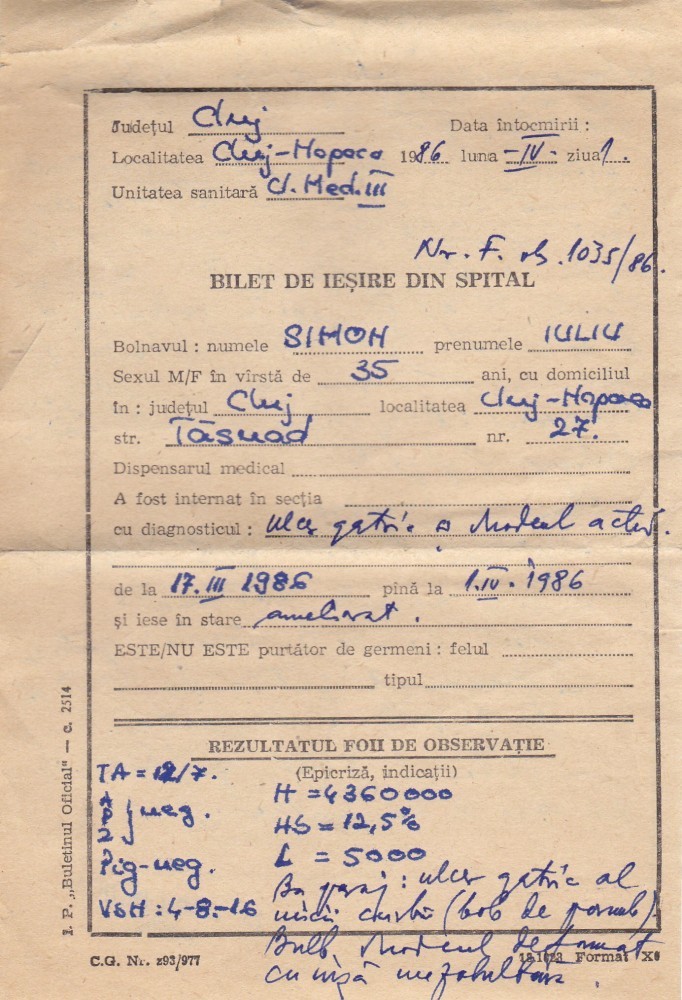 Județul Cluj Data întocmirii :
Localitatea Cluj-Napoca 1986 luna -IV- ziua 1.
Unitatea sanitară Cl. Med. III
Nr. F. ob. 1035/86.
BILET DE IEȘIRE DIN SPITAL
Bolnavul : numele SIMON prenumele IULIU
Sexul M/F în vîrstă de 35 ani, cu domiciliul
în : județul Cluj localitatea Cluj-Napoca
str. Tășnad nr. 27.
Dispensarul medical
A fost internat în secția
cu diagnosticul : ulcer gastric și duodenal activ.
de la 17.III 1986 pînă la 1.IV.1986
și iese în stare ameliorat.
ESTE/NU ESTE purtător de germeni : felul
tipul
REZULTATUL FOII DE OBSERVAȚIE
(Epicriză, indicații)
TA = 12/7.
H = 4360000
neg.
HB = 12,5%
Pig-neg.
L = 5000
VSH : 4-8-16
Ba pasaj : ulcer gastric al
micii curburi (bob de porumb)
Bulb duodenal deformat
cu nișă mezobulbară.
I. P. „Buletinul Oficial" — c. 2514
C.G. Nr. z93/977
18.1.73 Format X6